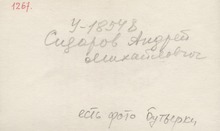 126/.
У-18548
Сидаров Андрей
Михайлович
есть фото Бутырки